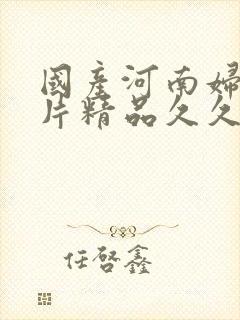 國產河南婦
片精品久久
任啓鑫